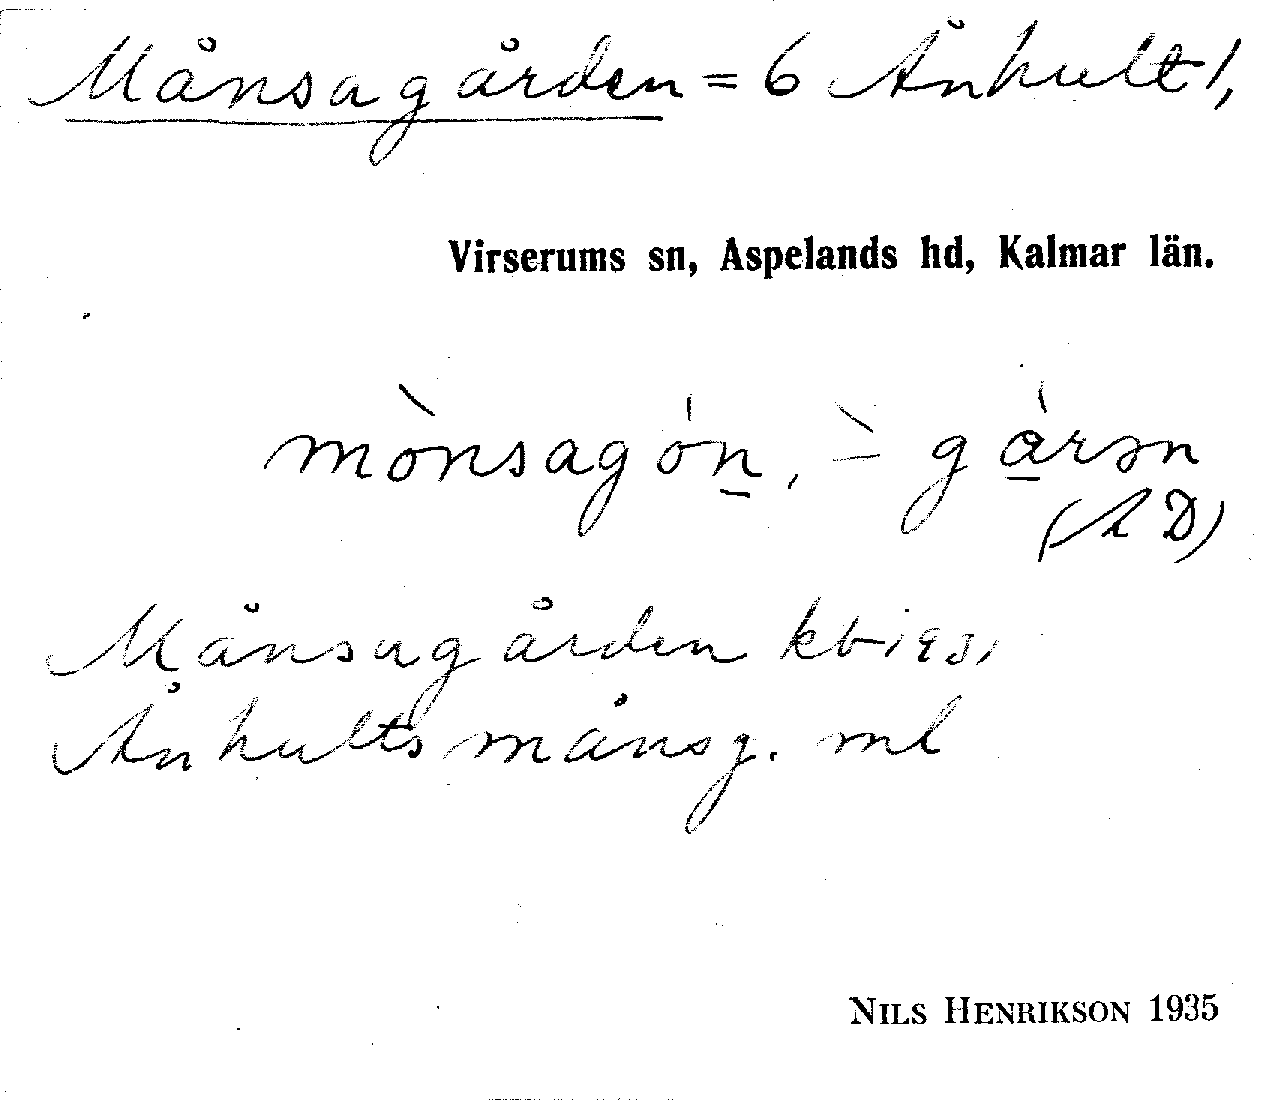 Månsagården = 6 Ånhult 1,
Virserums sn, Aspelands hd, Kalmar län.
mònsagón, ⸌ gàrən
(AD)
Månsagården kbi
Ånhults månsg. ml
NILS HENRIKSON 1935